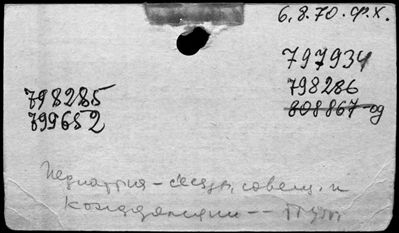 6.8.70.ф.х.
797934
798286
808867-од
798285
799652
Педиатрия - съезды, совещ. и
конференции --